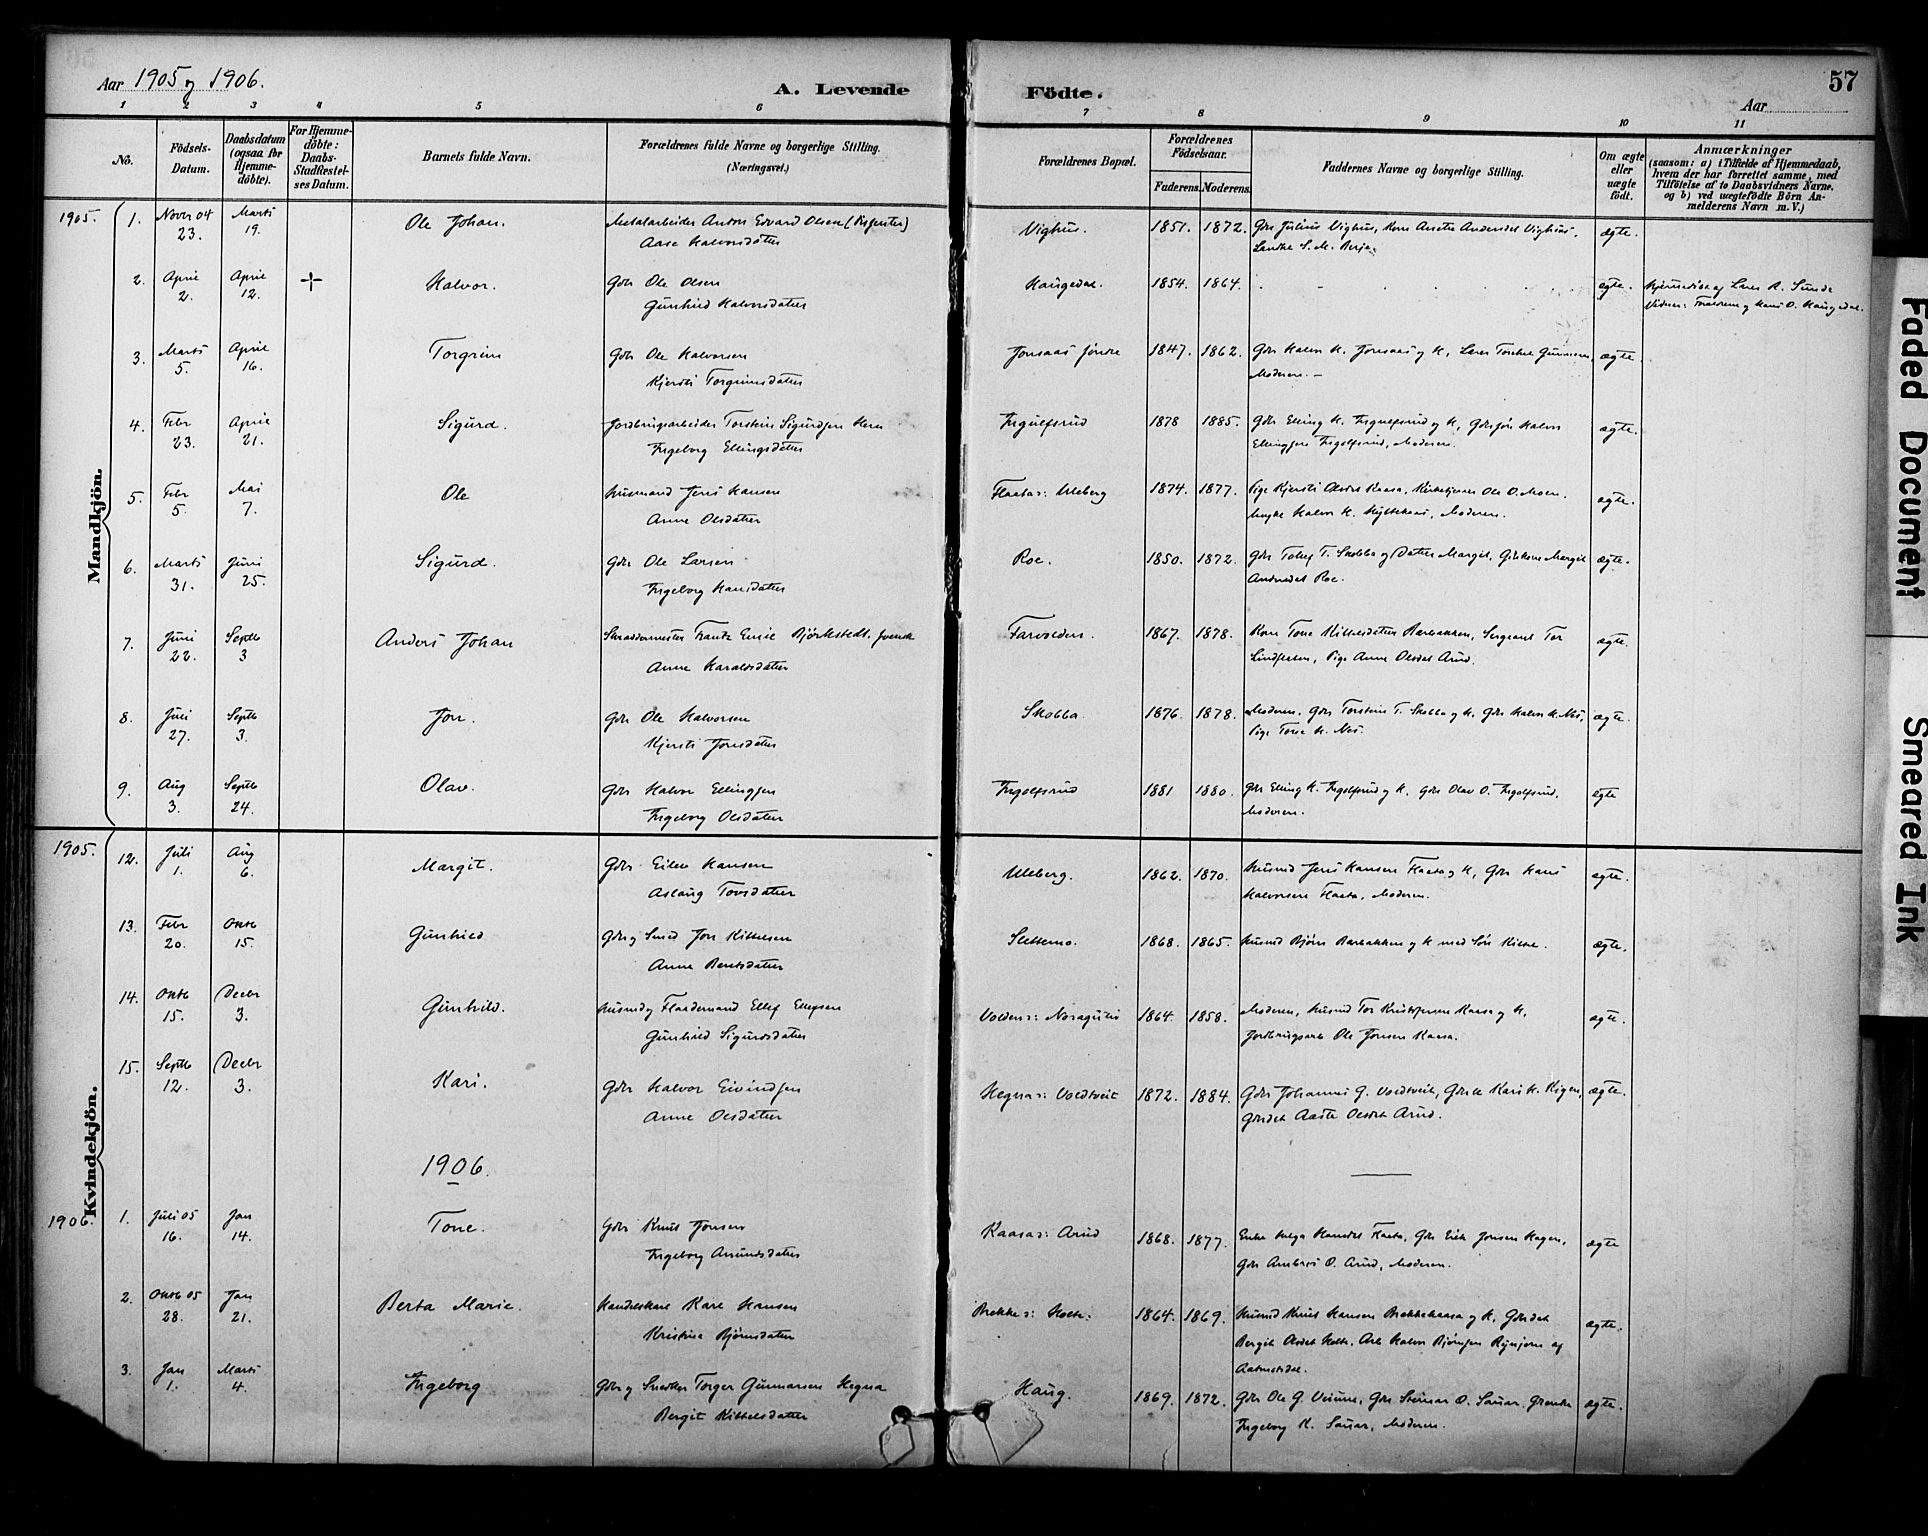 Aar 1905 og 1906.
A. Levende Födte.
57
Aar
1 2 3 4 5 6 7 8 9 10 11
No.
Födsels-Datum.
Daabsdatum (ogsaa for Hjemme-döbte).
For Hjemme-döbte: Daabs-Stadfæstel-ses Datum.
Barnets fulde Navn.
Forældrenes fulde Navne og borgerlige Stilling. (Næringsvei.)
Forældrenes Bopæl.
Forældrenes Födselsaar.
Faderens. Moderens.
Faddernes Navne og borgerlige Stilling.
Om ægte eller uægte födt.
Anmærkninger
(saasom: a) i Tilfælde af Hjemmedaab, hvem der har forrettet samme, med Tilföielse af to Daabsvidners Navne. og b) ved uægtefödte Börn An-melderens Navn m. V.)
Mandkjön.
1905. 1. Novbr 04 23. Marts 19. Ole Johan. Metalarbeider Anton Edvard Olsen
Aase Halvorsdatter
Vighus. 1851. 1872. Gbr Julius Vighus, Kone Anette Andersdet Vighus, ægte.
2. April 2. April 12. Halvor. Gbr Ole Olsen
Gunhild Halvorsdatter
Haugedal. 1854. 1864. ægte. Hjemmedøbt af Lærer H. Sunde
Vidner: Faderen og Hans O. Haugedal.
3. Marts 5. April 16. Torgrim Gbr Ole Halvorsen
Kjersti Torgrimsdatter
Jonsaas søndre 1847. 1862. Gbr Halvor H. Jonsaas og H, Lærer Torkel Gunnesen, ægte.
Moderen. –
4. Febr 23. April 21. Sigurd. Jordbrugsarbeider Torstein Sigurdsen
Ingeborg Ellingsdatter
Ingulfsrud 1878 1885. Gbr Elling H. Ingulfsrud og H, Gbrsøn Halvor ægte.
Ellingsen Ingolfsrud, Moderen.
5. Febr 5. Mai 7. Ole Husmand Jens Hansen
Anne Olsdatter
Flaata s: Uleberg 1874. 1877. Pige Kjersti Olsdet Kaasa, Kirketjener Ole O. Moen. ægte.
Ungkr Halvor H. Hyttekaas, Moderen.
6. Marts 31. Juni 25. Sigurd. Gbr Ole Larsen
Ingeborg Hansdatter
Roe. 1850. 1872. Gbr Tollef T. Skobba og Datter Margit, Gbrkone Margit ægte.
Andersdet Roe.
7. Juni 22. Septb 3 Anders Johan Skræddermester Frantz Emil Björkstedt. svensk
Anne Haraldsdatter
Farvolden. 1867. 1878. Kone Tone Kittelsdatter Barbakken, Sergeant Tor ægte.
Pige Anne Olsdet Arud.
8. Juli 27. Septb 3. Jon. Gbr Ole Halvorsen
Kjersti Jonsdatter
Skobba. 1876. 1878. Moderen, Gbr Torstein T. Skobba og H, Gbr Halvor H. Nes, ægte.
Pige Tone H. Nes.
9. Aug 3. Septb 24. Olav. Gbr Halvor Ellingsen
Ingeborg Olsdatter
Ingolfsrud 1881 1880. Gbr Elling H. Ingolfsrud og H, Gbr Olav O. Ingolfsrud, ægte
Moderen.
Kvindekjön.
1905. 12. Juli 1. Aug 6. Margit. Gbr Eilev Hansen
Aslaug Tovsdatter
Uleberg. 1862. 1870. Husmd Jens Hansen Flaata og H, Gbr Hans ægte.
Halvorsen Flaata, Moderen.
13. Febr 20. Oktb 15. Gunhild Gbr og Smed Jon Kittelsen
Anne Bentsdatter
Slettemo. 1868. 1865. Husmd Bjørn Barbakken og H med Søn Kittel. ægte.
14. Oktb 15. Decbr 3. Gunhild. Husmd og Flaademand Ellef Ellefsen
Gunhild Sigurdsdatter
Volden s: Noragutu 1864. 1858. Moderen, Husmd Tor Kristofersen Kaasa og H, ægte.
Jordbrugsarb Ole Jonsen Kaasa.
15. Septb 12. Decbr 3. Kari. Gbr Halvor Eivindsen
Anne Olsdatter
Hegna s: Voldtveit 1872. 1884. Gbr Johannes G. Voldtveit, Gbrk Kari H. Rigen, ægte.
Gbrdet Aaste Olsdet Arud.
1906.
1906. 1. Juli 05 16. Jan 14. Tone. Gbr Knut Jonsen
Ingeborg Amundsdatter
Kaasa s: Arud 1868. 1877. Enke Helga Hansdet Kaata, Gbr Eirik Jonsen Hagen, ægte
Gbr Ambros O. Arud, Moderen.
2. Oktb 05 28. Jan 21. Berta Marie. Handelskarl Karl Hansen
Kristine Bjørnsdatter
Brekke s: Holte: 1864. 1869. Husmd Knut Hansen Brekkekaasa og H, Gbrdet ægte.
Bergit Olsdet Holte, Arb Halvor Bjørnsen
3. Jan 1. Marts 4. Ingeborg Gbr og Snedker Torger Gunnarsen Hegna
Bergit Kittelsdatter
Haug. 1869. 1872. Gbr Ole G. Veum, Gbr Steinar O. Sauar, Gbrenke ægte.
Ingeborg K. Sauar, Moderen.
Faded Document Smeared Ink